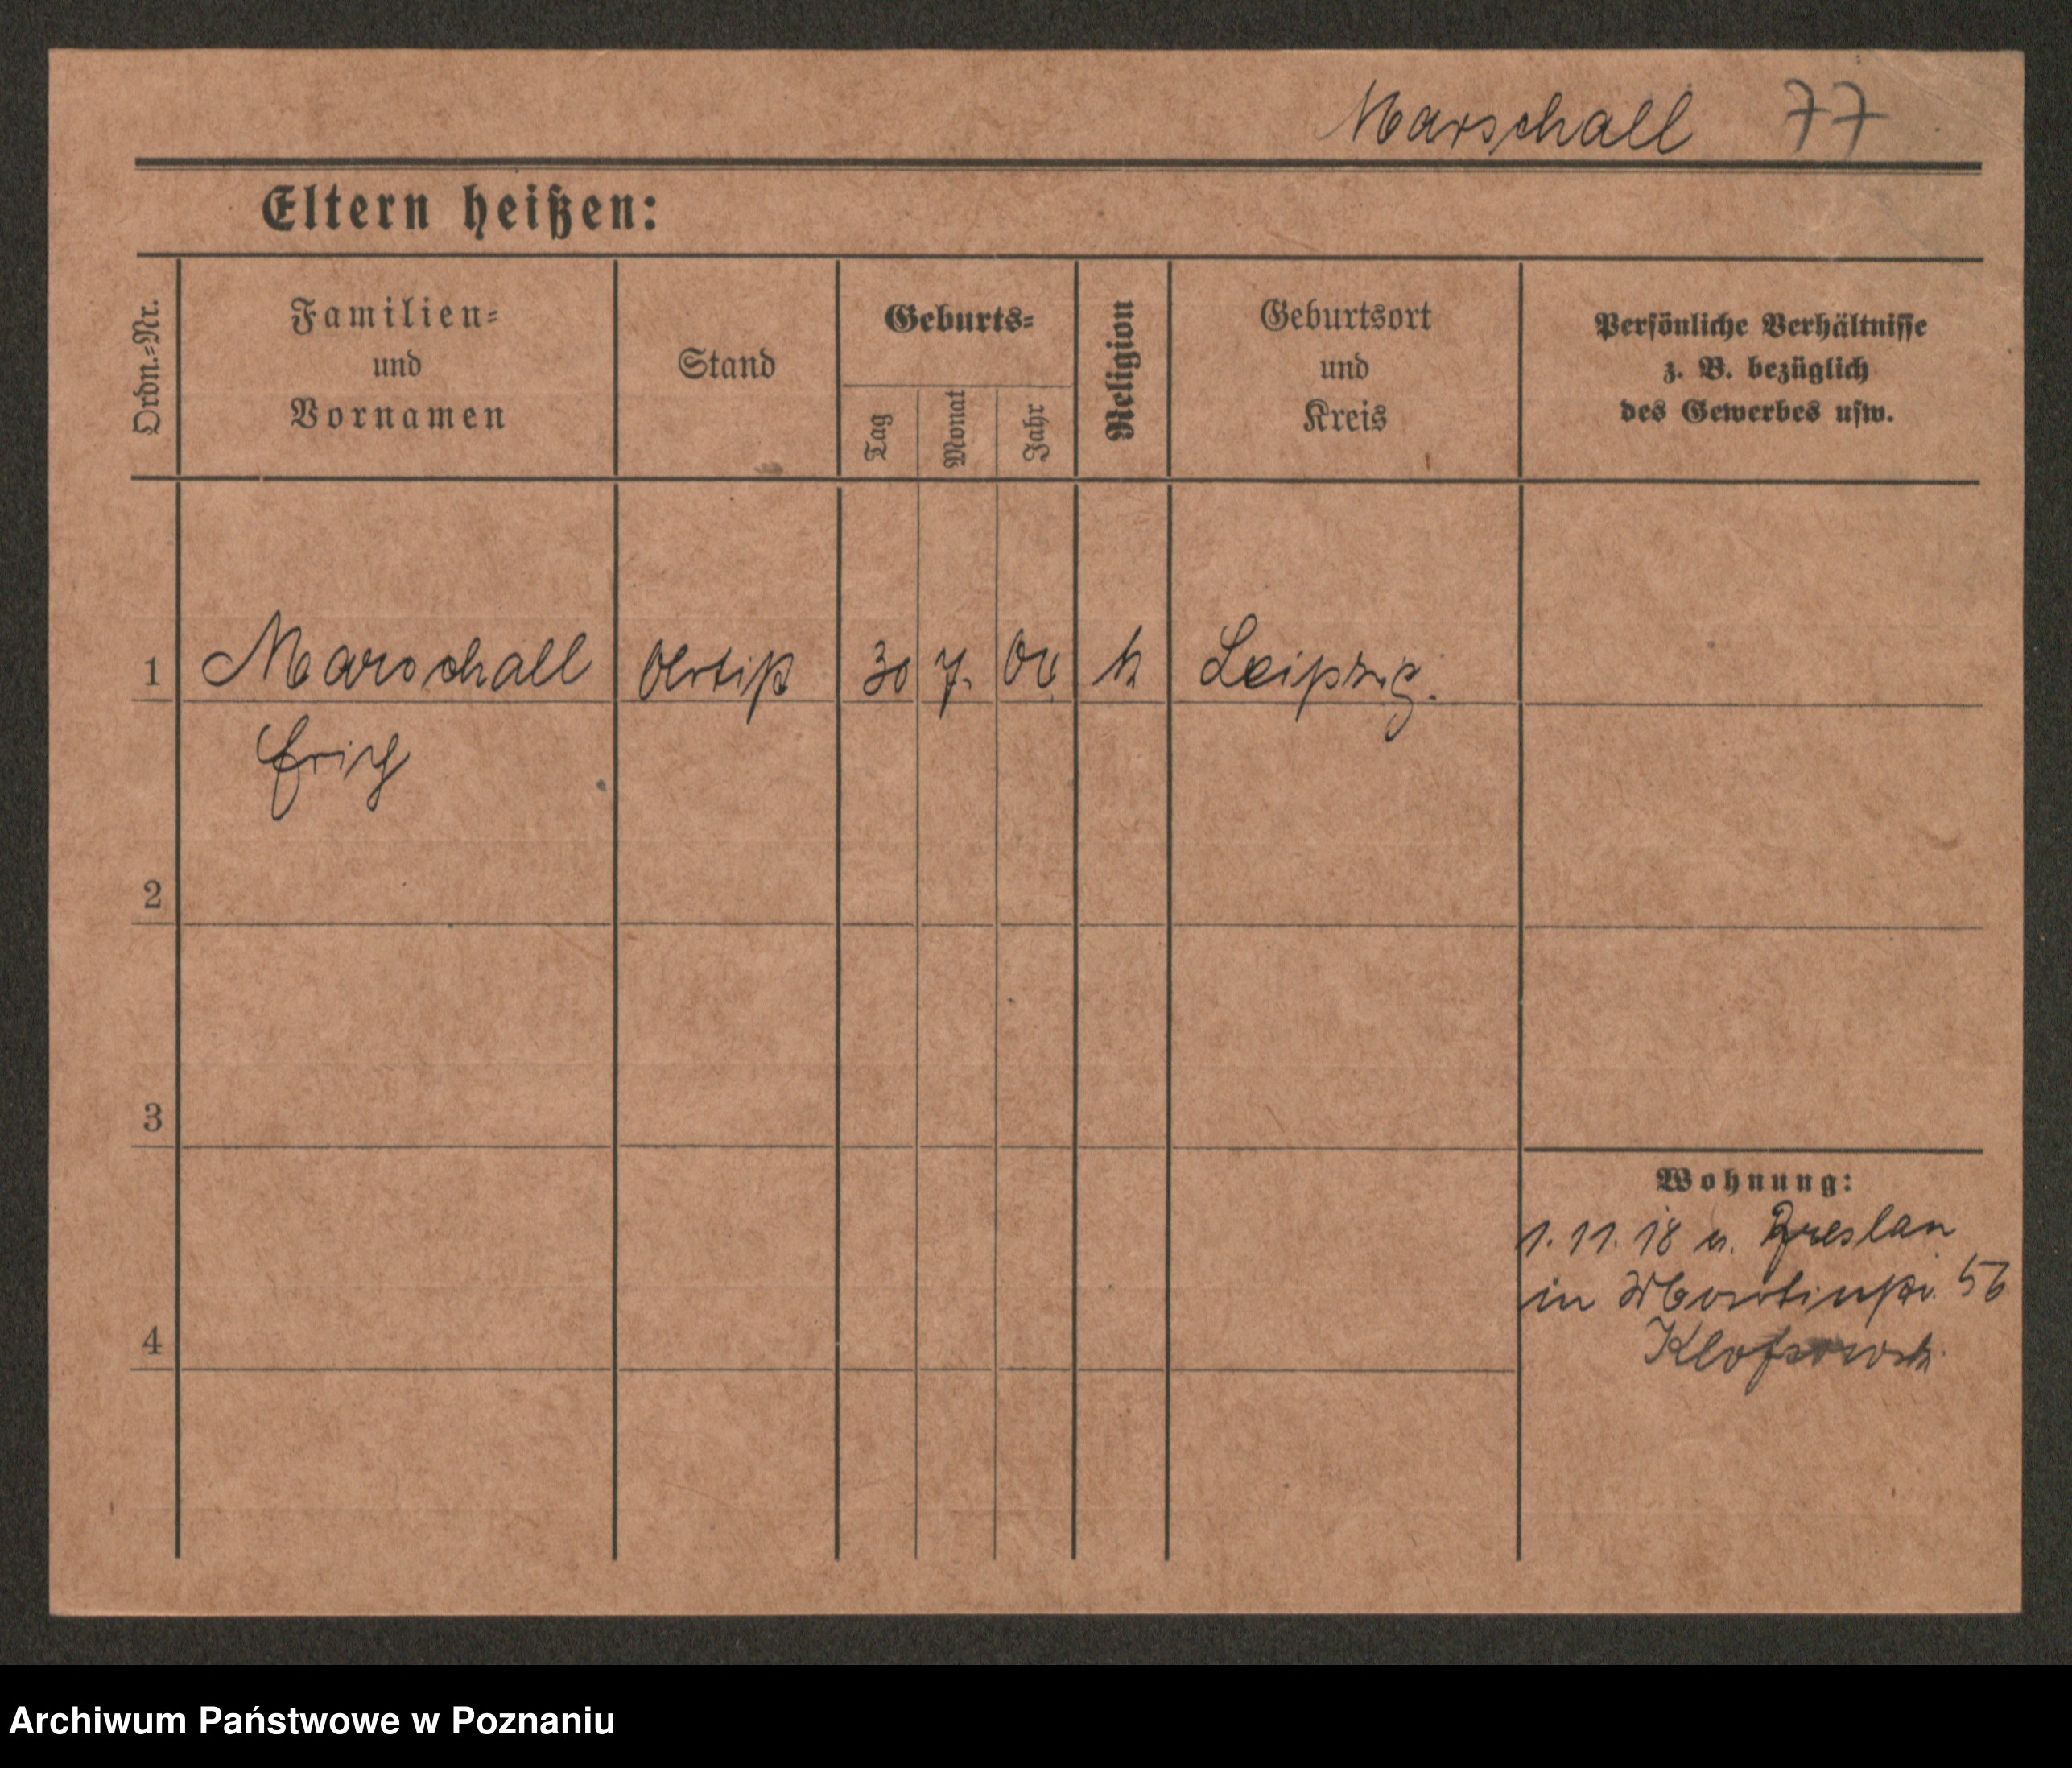 Marschall 77
Eltern heißen:
Ordn.=Nr.
Familien=
und
Vornamen
Stand
Geburts=
Tag
Monat
Jahr
Religion
Geburtsort
und
Kreis
Persönliche Verhältnisse
z. B. bezüglich
des Gewerbes usw.
1 Marschall Artist 30 7. 00 k Leipzig.
Erich
2
3
4
Wohnung:
1. 11. 18 v. Breslau
in Martinstr. 56
Archiwum Państwowe w Poznaniu